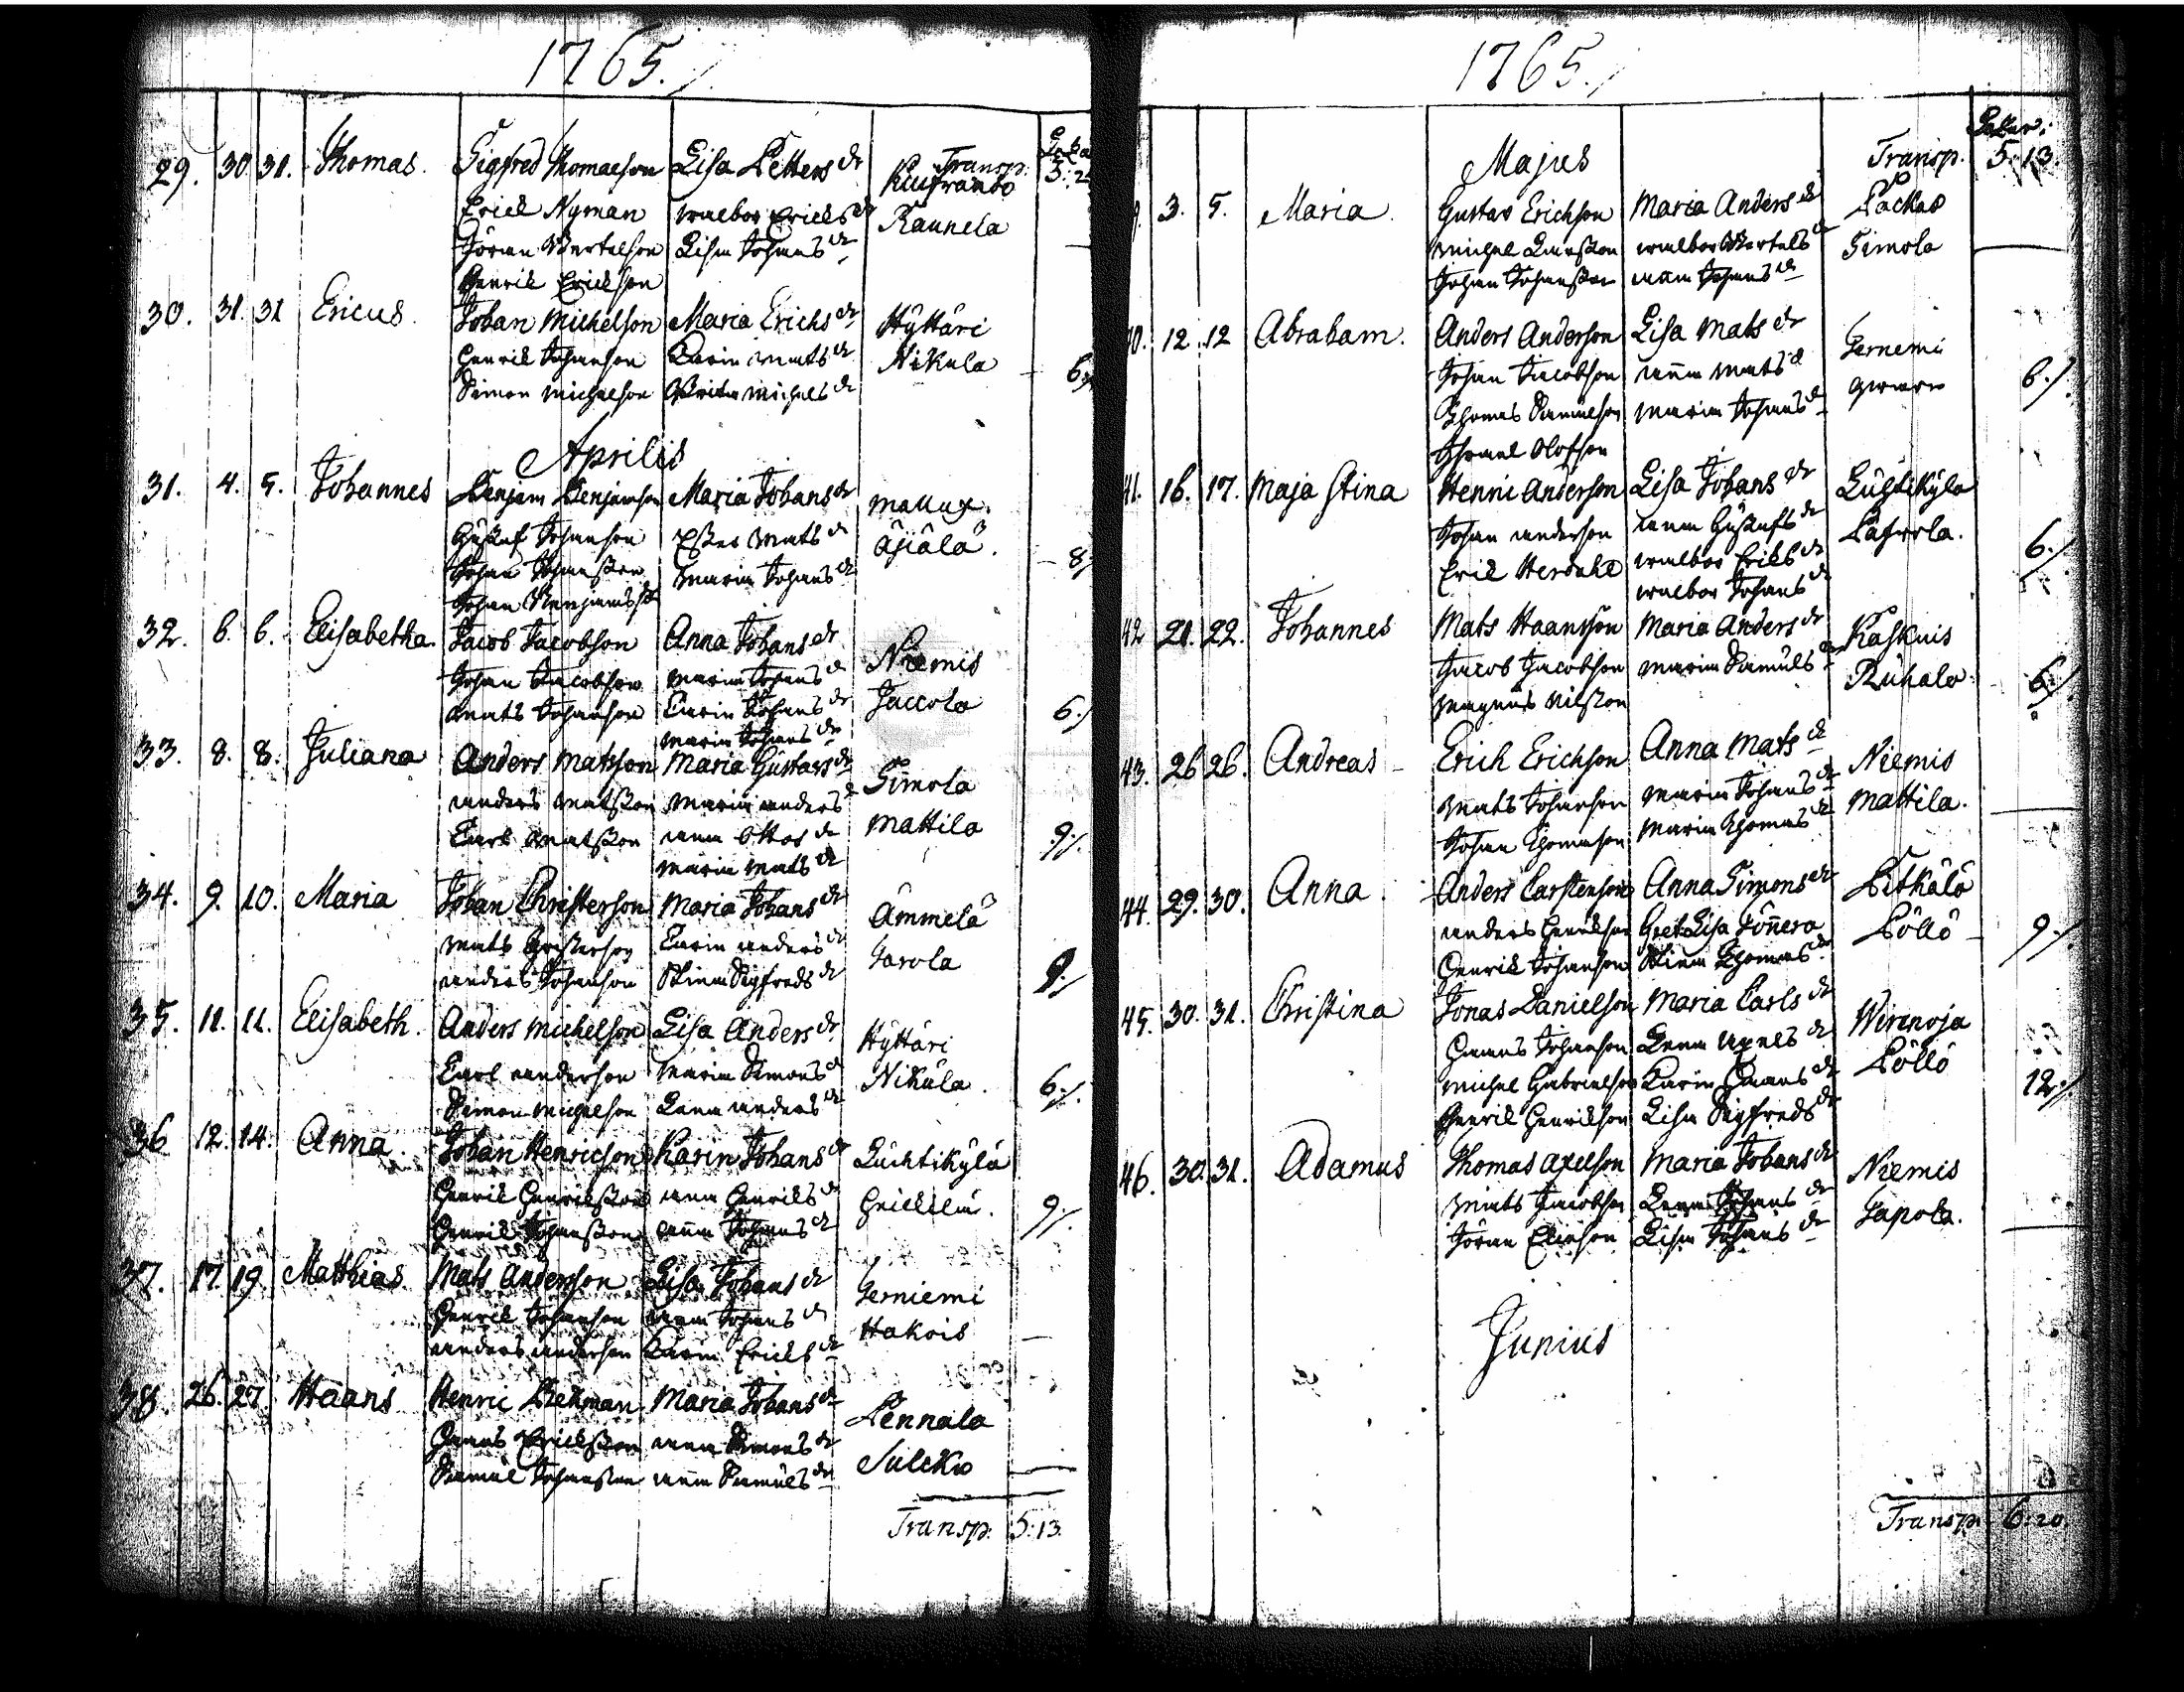 1765.
Transp.
29. 30 31. Thomas. Sigfred Thomaeson Lisa Petters dr
Erick Nyman walbor Ericks dr Raunela
Jöran Bertelson Lisa Johans dr
Henrik Erickson
30. 31. 31 Ericus. Johan Michelson Maria Erichs dr Hyttäri
Henrik Johanson Karin Mats dr Nikula 6
Simon Michelson Brita Michels dr
Aprilis
31. 4. 5. Johannes Benjam Benjamson Maria Johans dr
Gustaf Johanson Mats dr 8
Johan Johansson Maria Johans dr
Johan
32. 6. 6. Elisabetha. Jacob Jacobson Anna Johans dr Niemis
Johan Jacobson Maria Johans dr Jaccola
Mats Johanson Carin Johans dr 6./
Maria Johans dr
33. 8. 8. Juliana Anders Matsson Maria Gustafs dr Simola
Anders Matsson Maria Anders dr Mattila
Carl Matsson Anna Ottos dr 9./.
Maria Mats dr
34. 9. 10. Maria Johan Christerson Maria Johans dr Ämmelä
Mats Christerson Carin Anders dr Jarola
Anders Johanson Stina Sigfreds dr 9./
35. 11. 11. Elisabeth. Anders Michelson Lisa Anders dr Hyttäri
Carl Anderson Maria Simons dr Nikula. 6./.
Simon Michelson Anders dr
36 12. 14. Anna. Johan Henricson Karin Johans dr Luchtikylä
Henrik Henriksson Anna Henriks dr 9./.
Henrik Johansson Anna Johans dr
37. 17. 19. Matthias. Mats Andersson Lisa Johans dr Jerniemi
Henrik Johanson Anna Johans dr Hakois
Anders Anderson Karin Ericks dr
38. 26. 27. Haans Henric Bekman Maria Johans dr Pennala
Haans Ericksson Anna Simons dr Sulcko
Samuel Johansson Anna Samuels dr
Transp. 5:13.
1765.
Majus Transp. 5:13.
3. 5. Maria. Gustav Erichson Maria Anders dr Packas
Michel Larsson walbor Bertels dr Simola
Johan Johansson Anna Johans dr
40. 12. 12 Abraham. Anders Anderson Lisa Mats dr Jernemi
Johan Jacobson Anna Mats dr 6./.
Thomas Samuelson Maria Johans dr
Olofson
41. 16. 17. Maja Stina Henric Anderson Lisa Johans dr Luchtikylä
Johan Anderson Anna Gustafs dr
Erik Herdahl walbor Ericks dr 6./
walbor Johans dr
42 21. 22. Johannes Mats Haansson Maria Anders dr Kaskuis
Jacob Jacobson Maria Samuels dr Ruhala 6./
Magnus Nilsson
43. 26 26. Andreas Erich Erichson Anna Mats dr Niemis
Mats Johanson Maria Johans dr Mattila.
Johan Thomason Maria Thomas dr
44. 29. 30. Anna. Anders Carstenson Anna Simons dr Pitkälä
Anders Henrikson Gret Lisa Pöllö 9./
Henrik Johanson Stina Thomas dr
45. 30. 31. Christina Jonas Danielson Maria Carls dr Wirenoja
Haans Johanson Axels dr Pöllö
Michel Gabrielson Karin Haans dr 12./.
Henrik Henrikson Lisa Sigfreds dr
46. 30. 31. Adamus Thomas Axelson Maria Johans dr Niemis
Mats Jacobson Johans dr Japola.
Jöran Eliason Lisa Johans dr
Junius
Transp. 6:20.